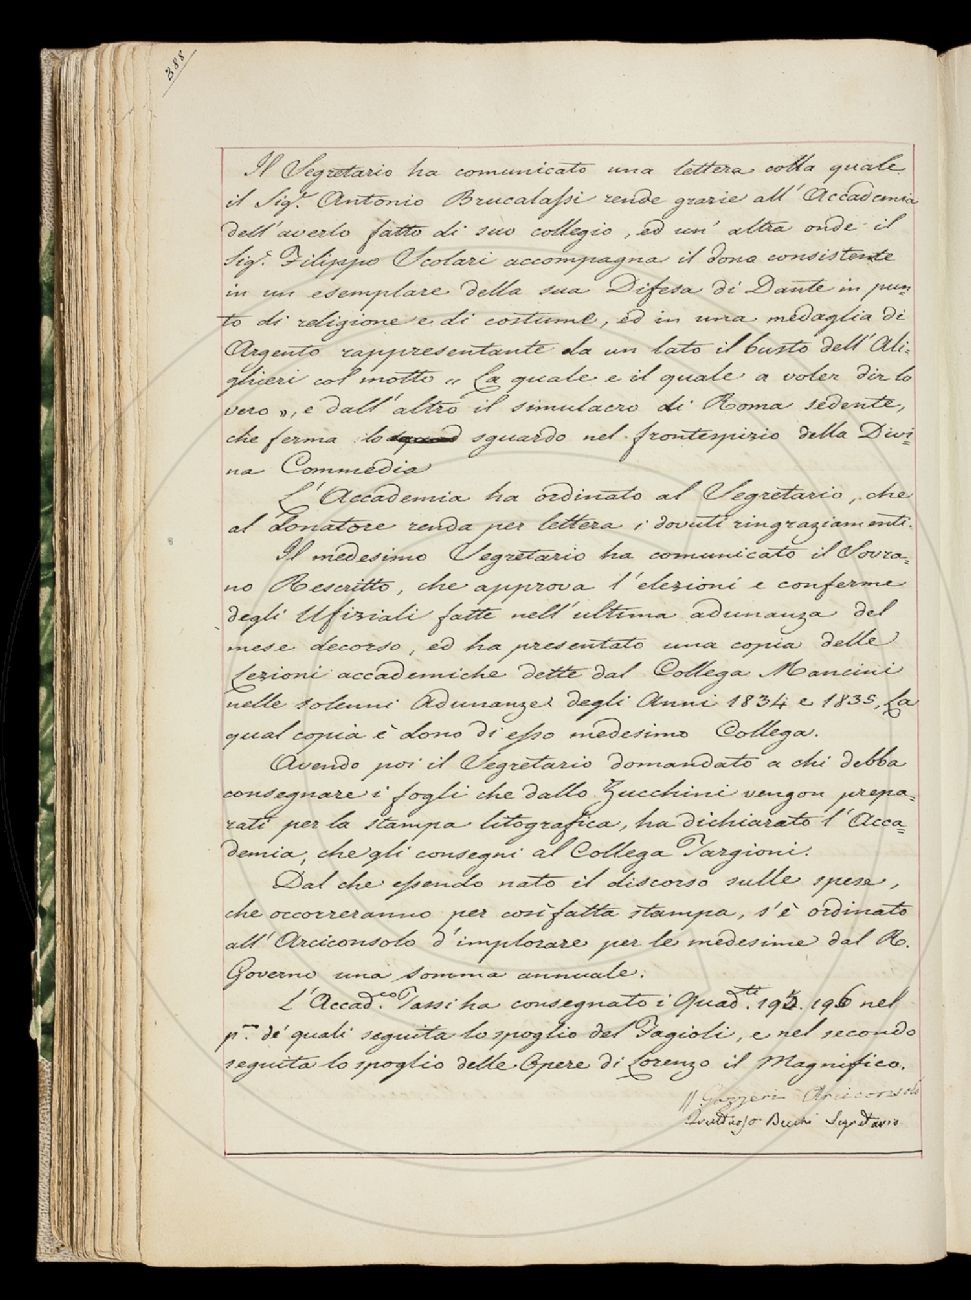 388
Il Segretario ha comunicato una lettera colla quale
il Sig.r Antonio Brucalassi rende grazie all'Accademia
dell'averlo fatto di suo collegio, ed un'altra onde il
Sig.r Filippo Scolari accompagna il dono consistente
in un esemplare della sua Difesa di Dante in pun=
to di religione e di costume, ed in una medaglia di
Argento rappresentante da un lato il busto dell'Ali=
ghieri col motto „ La quale e il quale a voler dir lo
vero „, e dall'altro il simulacro di Roma sedente,
che ferma lo sguardo nel frontespizio della Divi=
na Commedia
L'Accademia ha ordinato al Segretario, che
al donatore renda per lettera i dovuti ringraziamenti.
Il medesimo Segretario ha comunicato il Sovra=
no Rescritto, che approva l'elezioni e conferme
degli Ufiziali fatte nell'ultima adunanza del
mese decorso, ed ha presentato una copia delle
Lezioni accademiche dette dal Collega Mancini
nelle solenni Adunanze degli Anni 1834 e 1835, La
qual copia è dono di esso medesimo Collega.
Avendo poi il Segretario domandato a chi debba
consegnare i fogli che dallo Zucchini vengon prepa=
rati per la stampa litografica, ha dichiarato l'Acca=
demia, che gli consegni al Collega Targioni.
Dal che essendo nato il discorso sulle spese,
che occorreranno per così fatta stampa, s'è ordinato
all'Arciconsolo d'implorare per le medesime dal R.
Governo una somma annuale.
L'Accad.co Tassi ha consegnato i Quad.tti 195. 196 nel
p.mo de' quali seguita lo spoglio del Fagioli, e nel secondo
seguita lo spoglio delle Opere di Lorenzo il Magnifico.
Gazzeri Arciconsolo
Fruttuoso Becchi Segretario